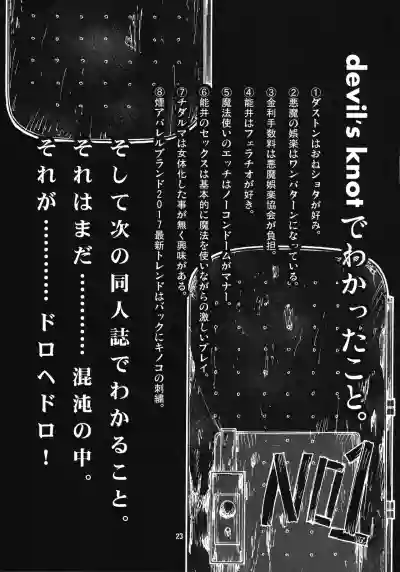 devil's knotでわかったこと。
①ダストンはおねショタが好み。
②悪魔の娯楽はワンパターンになっている。
③金利手数料は悪魔娯楽協会が負担。
④能井はフェラチオが好き。
⑤魔法使いのエッチはノーコンドームがマナー。
⑥能井のセックスは基本的に魔法を使いながらの激しいプレイ。
⑦チダルマは女体化した事が無く興味がある。
⑧煙アパレルブランド2017最新トレンドはバックにキノコの刺繍。
そして次の同人誌でわかること。
それはまだ…………混沌の中。
それが…………ドロヘドロ！
NO1
23